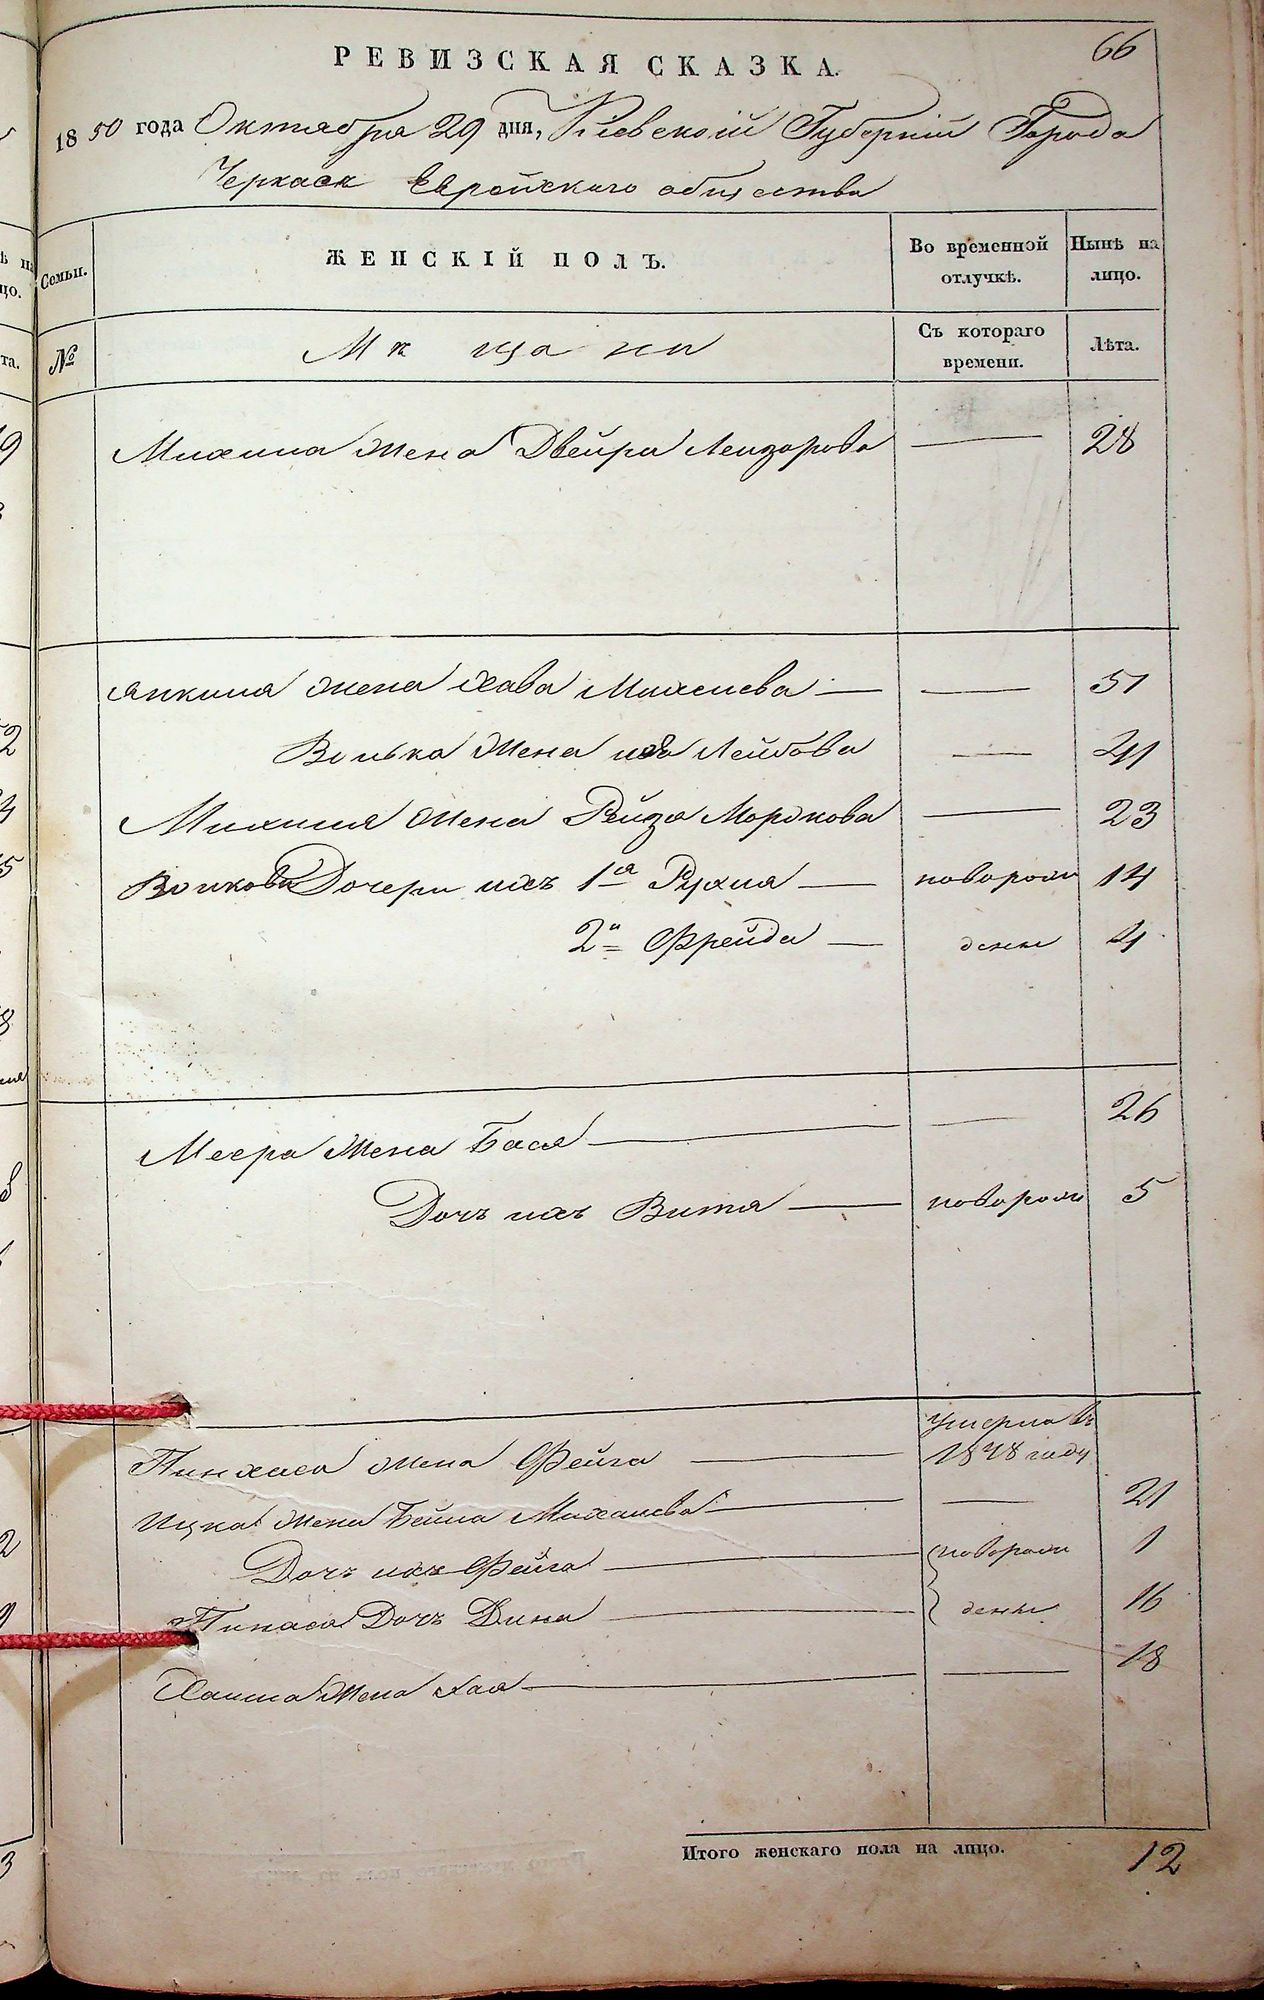 66
РЕВИЗСКАЯ СКАЗКА.
1850 года Октября 29 дня, Кіевской Губерніи Города
Черкас Еврейскаго общества
Семьи.
ЖЕНСКІЙ ПОЛЪ.
Во временной отлучкѣ.
Нынѣ на лицо.
№
Мѣщане
Съ котораго времени.
Лѣта.
Михиля Жена Двейра Лейзорова — 28
Янкиля жена Хава Михелева — — 51
Волька Жена Лейбова — 41
Михиля Жена Рейзя Мордкова — 23
Волькови Дочери ихъ 1я Рухля — новорож 14
2я Фрейда — денны 4
Меера Жена Бася — — 26
Дочь ихъ Витя — новорож 5
Пинхаса жена Фейга — умерла въ 1848 году
Ицка Жена Бейла Михелева — — 21
Дочь ихъ Фейга — новорож 1
Пинхаса Дочь Дина — денны 16
Хаима Жена Хая — — 18
Итого женскаго пола на лицо. 12